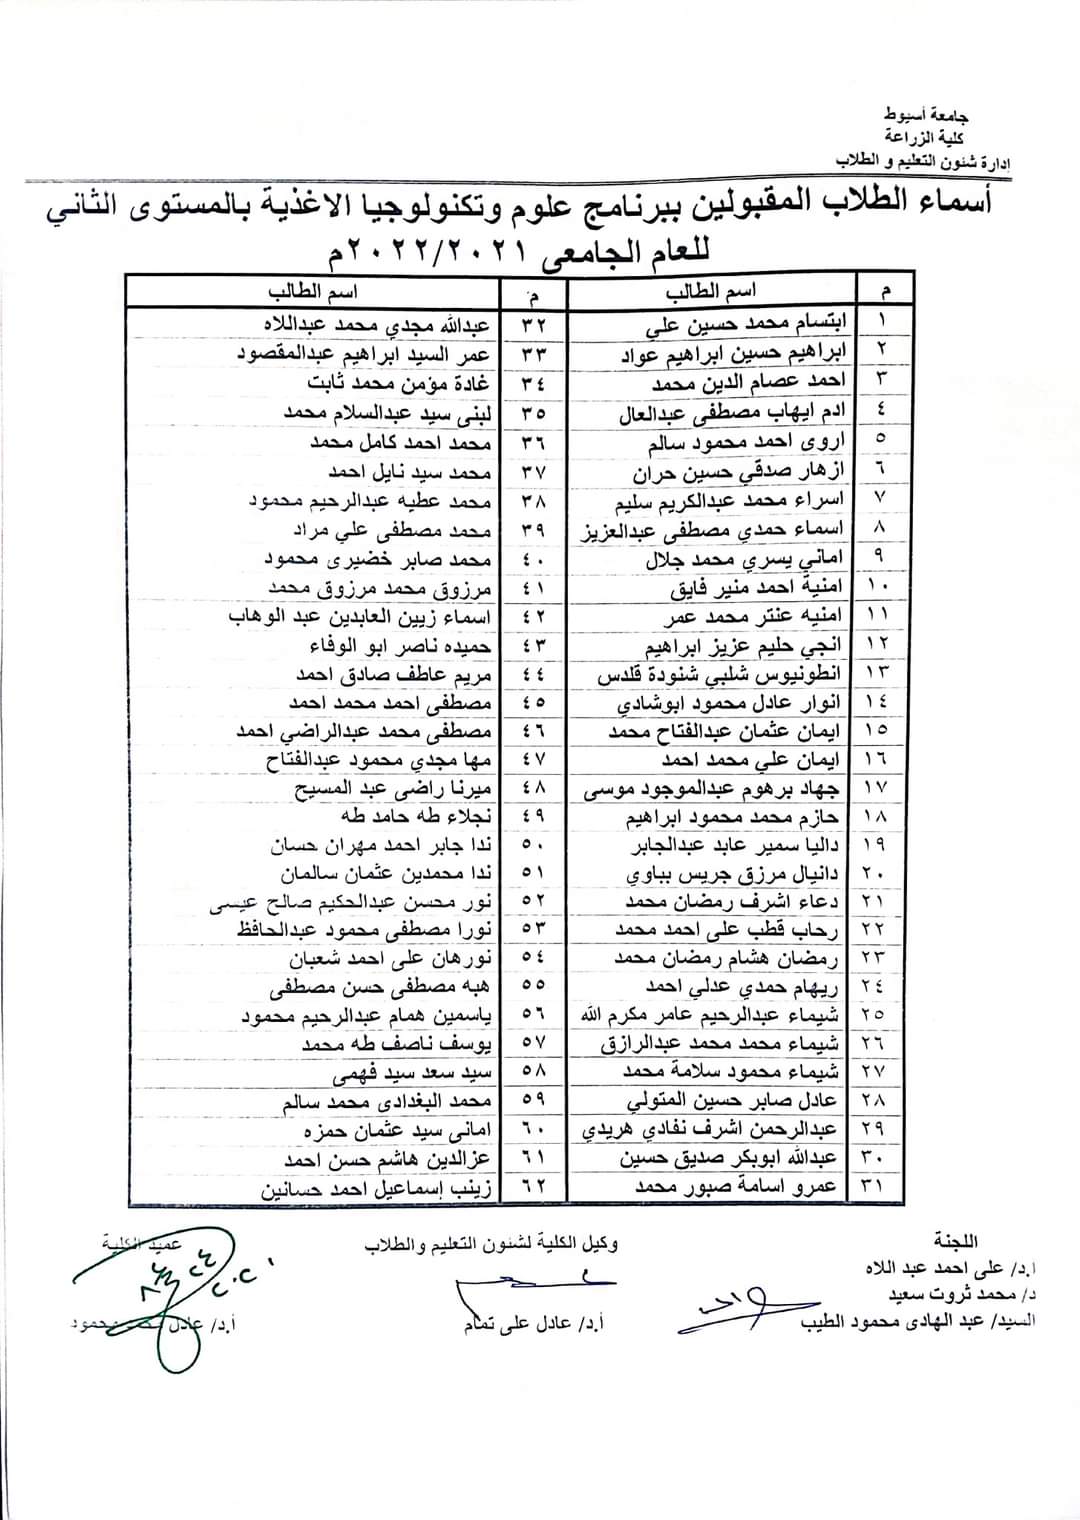 جامعة أسيوط
كلية الزراعة
إدارة شئون التعليم و الطلاب
أسماء الطلاب المقبولين ببرنامج علوم وتكنولوجيا الاغذية بالمستوى الثاني
للعام الجامعى ٢٠٢٢/٢٠٢١م
م اسم الطالب م اسم الطالب
١ ابتسام محمد حسين علي ٣٢ عبدالله مجدي محمد عبداللاه
٢ ابراهيم حسين ابراهيم عواد ٣٣ عمر السيد ابراهيم عبدالمقصود
٣ احمد عصام الدين محمد ٣٤ غادة مؤمن محمد ثابت
٤ ادم ايهاب مصطفى عبدالعال ٣٥ لبنى سيد عبدالسلام محمد
٥ اروى احمد محمود سالم ٣٦ محمد احمد كامل محمد
٦ ازهار صدقي حسين حران ٣٧ محمد سيد نايل احمد
٧ اسراء محمد عبدالكريم سليم ٣٨ محمد عطيه عبدالرحيم محمود
٨ اسماء حمدي مصطفى عبدالعزيز ٣٩ محمد مصطفى علي مراد
٩ اماني يسري محمد جلال ٤٠ محمد صابر خضيرى محمود
١٠ امنية احمد منير فايق ٤١ مرزوق محمد مرزوق محمد
١١ امنيه عنتر محمد عمر ٤٢ اسماء زيين العابدين عبد الوهاب
١٢ انجي حليم عزيز ابراهيم ٤٣ حميده ناصر ابو الوفاء
١٣ انطونيوس شلبي شنودة قلدس ٤٤ مريم عاطف صادق احمد
١٤ انوار عادل محمود ابوشادي ٤٥ مصطفى احمد محمد احمد
١٥ ايمان عثمان عبدالفتاح محمد ٤٦ مصطفى محمد عبدالراضي احمد
١٦ ايمان علي محمد احمد ٤٧ مها مجدي محمود عبدالفتاح
١٧ جهاد برهوم عبدالموجود موسى ٤٨ ميرنا راضى عبد المسيح
١٨ حازم محمد محمود ابراهيم ٤٩ نجلاء طه حامد طه
١٩ داليا سمير عابد عبدالجابر ٥٠ ندا جابر احمد مهران حسان
٢٠ دانيال مرزق جريس بباوي ٥١ ندا محمدين عثمان سالمان
٢١ دعاء اشرف رمضان محمد ٥٢ نور محسن عبدالحكيم صالح عيسى
٢٢ رحاب قطب على احمد محمد ٥٣ نورا مصطفى محمود عبدالحافظ
٢٣ رمضان هشام رمضان محمد ٥٤ نورهان على احمد شعبان
٢٤ ريهام حمدي عدلي احمد ٥٥ هبه مصطفى حسن مصطفى
٢٥ شيماء عبدالرحيم عامر مكرم الله ٥٦ ياسمين همام عبدالرحيم محمود
٢٦ شيماء محمد محمد عبدالرازق ٥٧ يوسف ناصف طه محمد
٢٧ شيماء محمود سلامة محمد ٥٨ سيد سعد سيد فهمى
٢٨ عادل صابر حسين المتولي ٥٩ محمد البغدادى محمد سالم
٢٩ عبدالرحمن اشرف نفادي هريدي ٦٠ امانى سيد عثمان حمزه
٣٠ عبدالله ابوبكر صديق حسين ٦١ عزالدين هاشم حسن احمد
٣١ عمرو اسامة صبور محمد ٦٢ زينب إسماعيل احمد حسانين
اللجنة وكيل الكلية لشئون التعليم والطلاب عميد الكلية
ا.د/ على احمد عبد اللاه
د/ محمد ثروت سعيد
السيد/ عبد الهادى محمود الطيب أ.د/ عادل على تمام أ.د/ عادل محمود